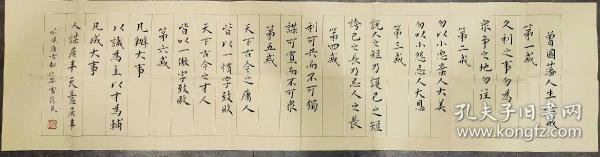 曾國藩人生六戒
第一戒
久利之事勿為
眾爭之地勿往
第二戒
勿以小惡棄人大美
勿以小怨忘人大恩
第三戒
說人之短乃護己之短
誇己之長乃忌人之長
第四戒
利可共而不可獨
謀可寡而不可眾
第五戒
天下古今之庸人
皆以一惰字致敗
天下古今之才人
皆以一傲字致敗
第六戒
凡辦大事
以識為主以才為輔
凡成大事
人謀居半天意居半
孔夫子旧书网